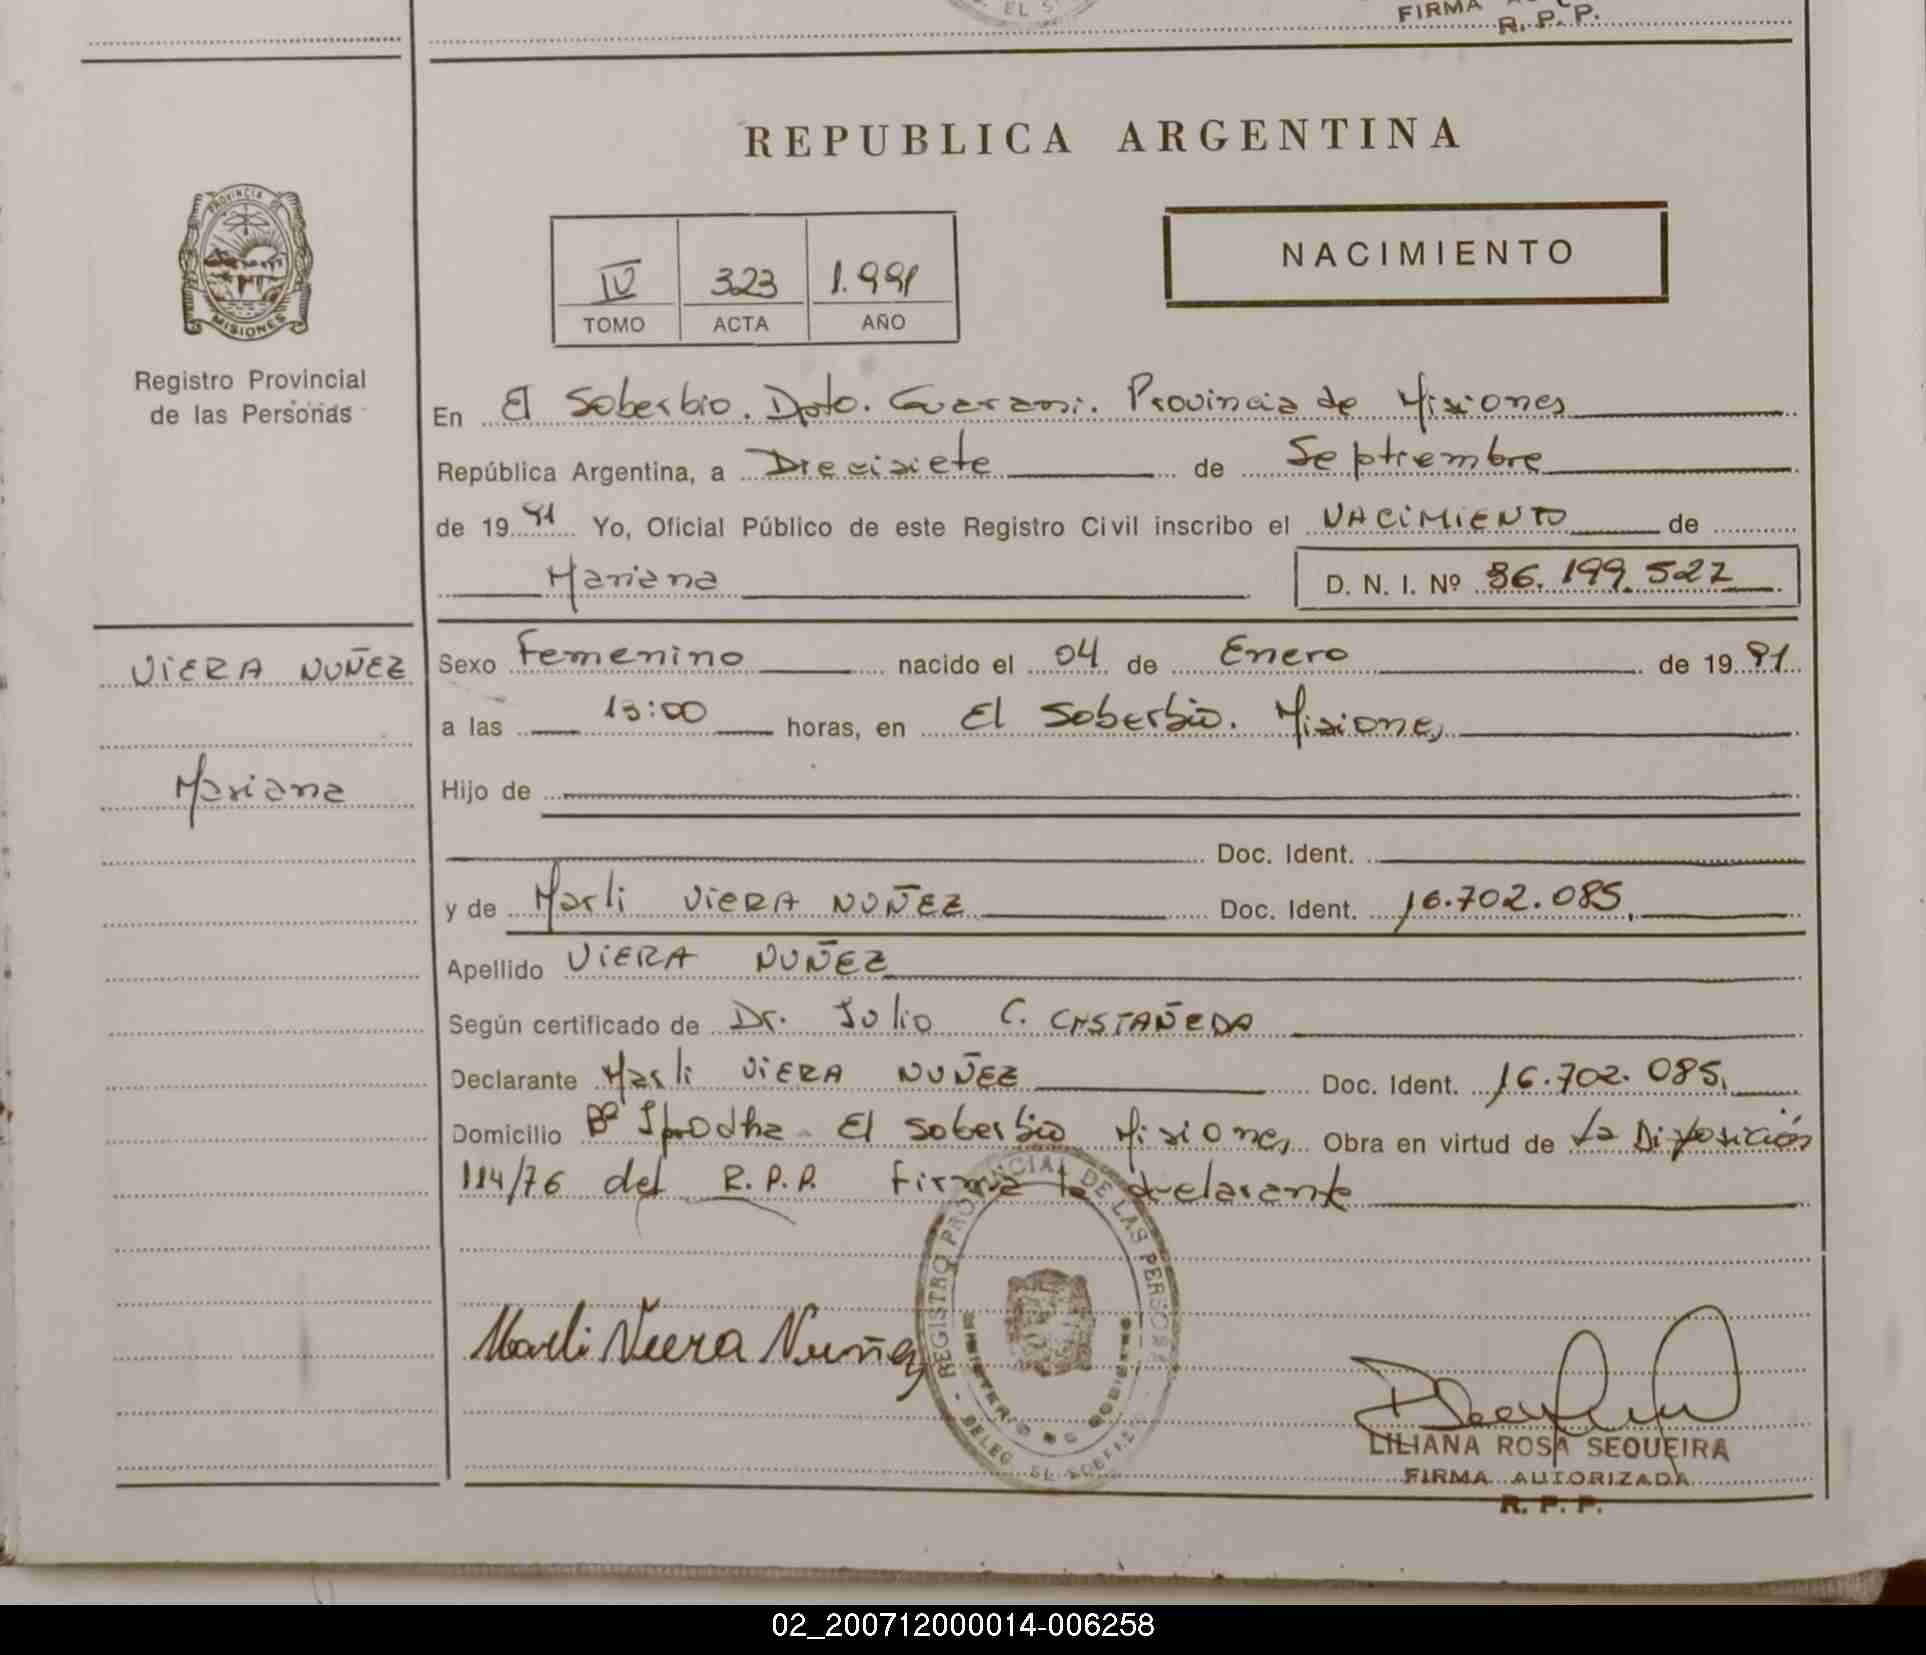 EL S
FIRMA
R. P. P.
REPUBLICA ARGENTINA
PROVINCIA DE
MISIONES
Registro Provincial
de las Personas
IV 323 1.991
TOMO ACTA AÑO
NACIMIENTO
En El Soberbio. Dpto. Guarani. Provincia de Misiones
República Argentina, a Diecisiete de Septiembre
de 19 91 Yo, Oficial Público de este Registro Civil inscribo el NACIMIENTO de
Mariana D. N. I. Nº 36.199.527
VIERA NUÑEZ
Mariana
Sexo Femenino nacido el 04 de Enero de 19 91
a las 13:00 horas, en El Soberbio. Misiones
Hijo de
Doc. Ident.
y de Marli VIERA NUÑEZ Doc. Ident. 16.702.085.
Apellido VIERA NUÑEZ
Según certificado de Dr. Julio C. CASTAÑEDA
Declarante Marli VIERA NUÑEZ Doc. Ident. 16.702.085.
Domicilio Bº El Soberbio Misiones Obra en virtud de La Disposición
114/76 del R.P.P. Firma la declarante
REGISTRO PROVINCIAL DE LAS PERSONAS
MINISTERIO DE GOBIERNO
DELEG. EL SOBERBIO
Marli Viera Nuñez
LILIANA ROSA SEQUEIRA
FIRMA AUTORIZADA
R. P. P.
02_200712000014-006258